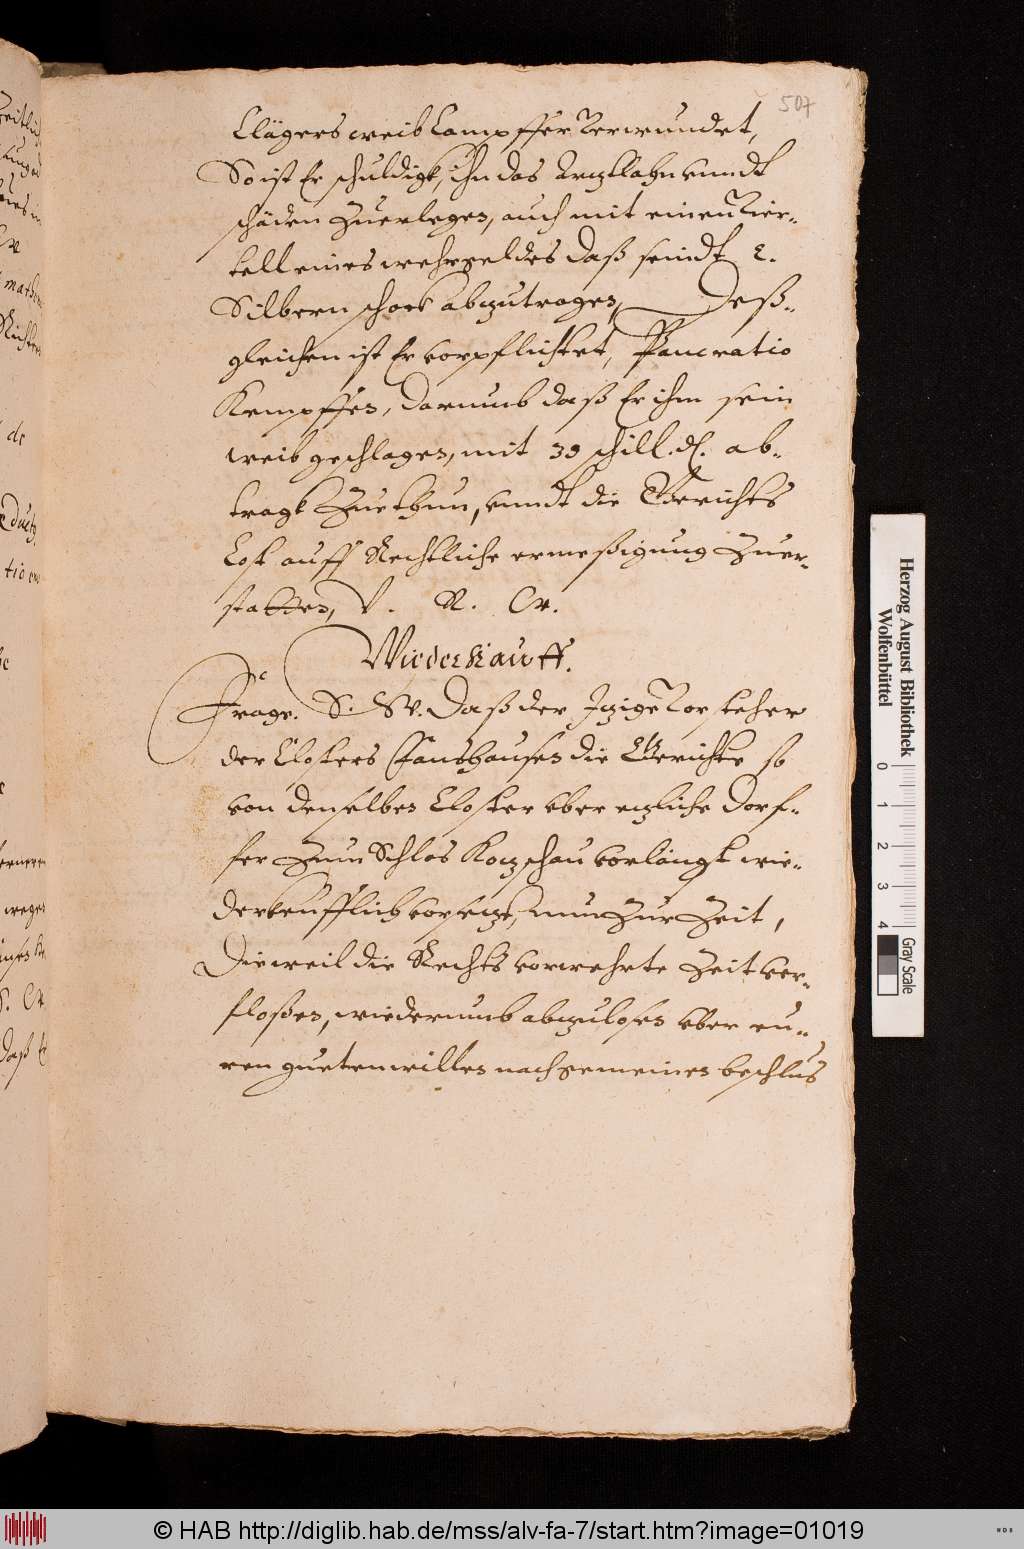 507
Clägers weib Campffer Verwundet,
So ist Er schuldigk, ihn das Arztlohn vnndt
schäden Zuerlegen, auch mit einen Vier-
tell eines wehrgeldes daß seindt 2.
Silbern schock abzutragen, Deß-
gleichen ist Er vorpflichtet, Pancratio
Kempffen, darumb daß Er ihm sein
weib geschlagen, mit 30 schill. d. ab-
tragk Zuethun, vnndt die Gerichts
Cost auff Rechtliche ermeßigung Zuer-
statten, V. R. W.
Wiederkauff.
Frage. S. W. Daß der Izige Vorsteher
der Closters die Gerichte so
von denselben Closter vber ezliche Dorf-
fer Zum Schlos Kozschau vorlängst wie-
derkeufflich vorsezt, nun Zur Zeit,
Dieweil die Rechts vorwehrte Zeit ver-
floßen, wiederumb abzulosen vber eu-
ren guetenwillen nach gemeinen beschlus
Herzog August Bibliothek
Wolfenbüttel
0 1 2 3 4
Gray Scale
© HAB http://diglib.hab.de/mss/alv-fa-7/start.htm?image=01019